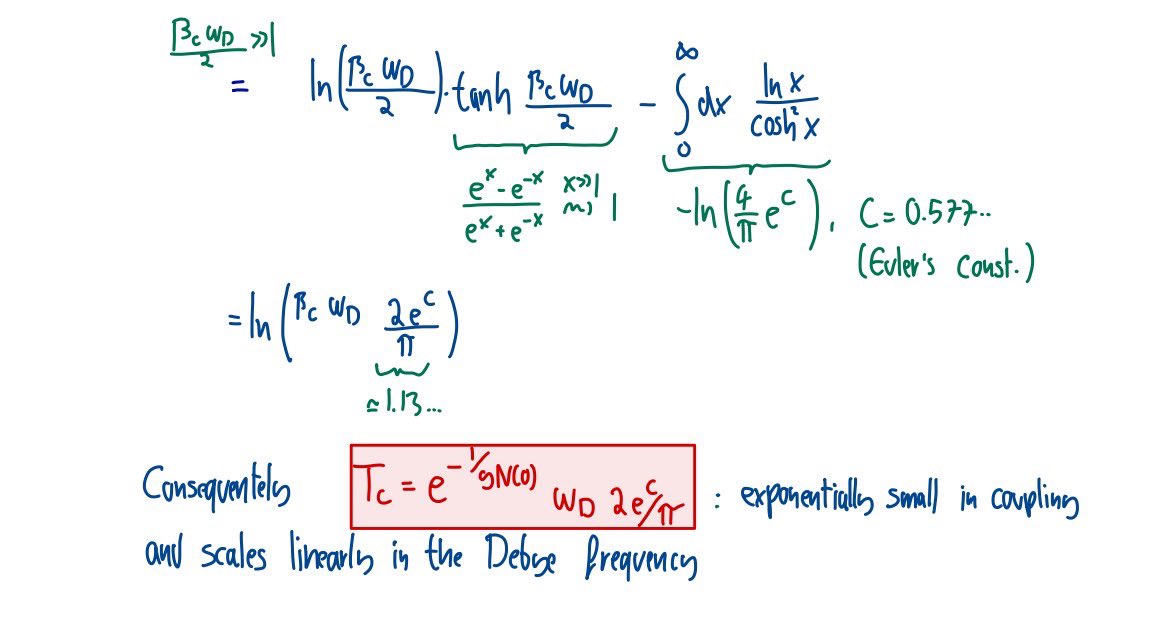 β_c ω_D / 2 ≫ 1
= ln(β_c ω_D / 2) · tanh β_c ω_D / 2 − ∫_0^∞ dx ln x / cosh² x
(e^x - e^-x) / (e^x + e^-x) x≫1 ⤳ 1
-ln(4/π e^C), C = 0.577..
(Euler's const.)
= ln(β_c ω_D 2e^C / π)
≃ 1.13...
Consequentely T_c = e^{-1/gN(0)} ω_D 2e^C/π : exponentially small in coupling
and scales linearly in the Debye frequency